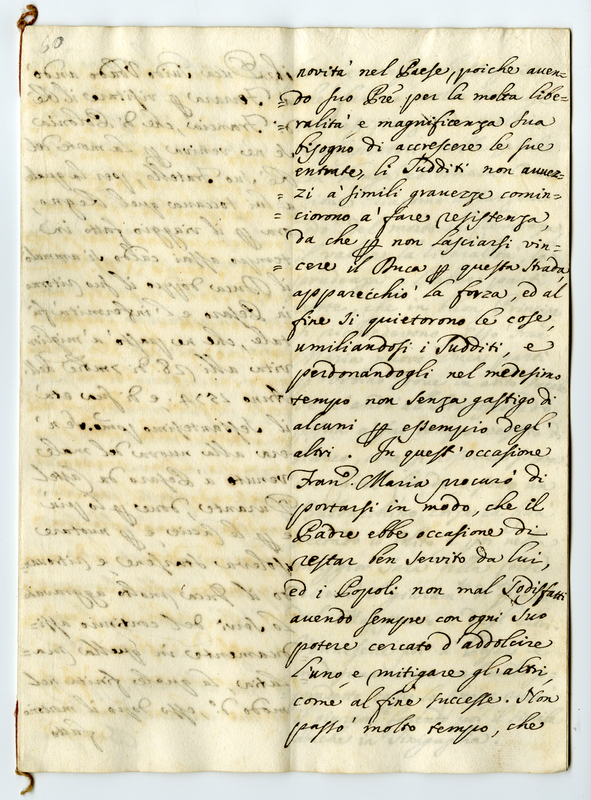 60
novità nel Paese, poiche aven=
=do suo Pre per la molta libe=
=ralità e magnificenza sua
bisogno di accrescere le sue
entrate, li Sudditi non avvez=
=zi à simili gravezze comin=
=ciorono a fare resistenza,
da che p non lasciarsi vin=
=cere il Duca p questa strada
apparecchiò la forza, ed al
fine si quietorono le cose,
umiliandosi i Sudditi, e
perdonandogli nel medesimo
tempo non senza gastigo di
alcuni p essempio degl'
altri. In quest'occasione
Frano. Maria procurò di
portarsi in modo, che il
Padre ebbe occasione di
restar ben servito da lui,
ed i Popoli non mal sodisfatti
avendo sempre con ogni suo
potere cercato d'addolcire
l'uno, e mitigare gl'altri,
come al fine successe. Non
passò molto tempo, che